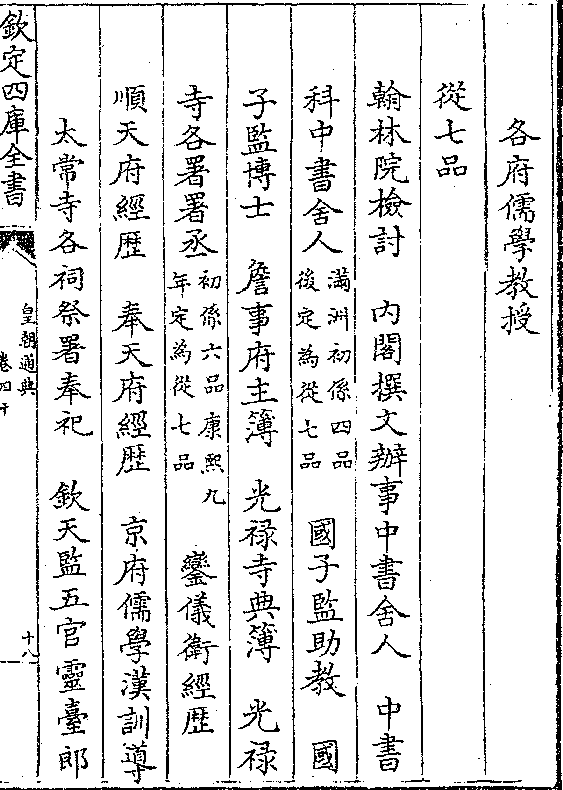 各府儒學教授
從七品
翰林院檢討　內閣撰文辦事中書舍人　中書
科中書舍人滿洲初係四品後定為從七品　國子監助教　國
子監博士　詹事府主簿　光祿寺典簿　光祿
寺各署署丞初係六品康熙九年定為從七品　鑾儀衛經歷
順天府經歷　奉天府經歷　京府儒學漢訓導
太常寺各祠祭署奉祀　欽天監五官靈臺郎
欽定四庫全書
皇朝通典
卷四十
十八